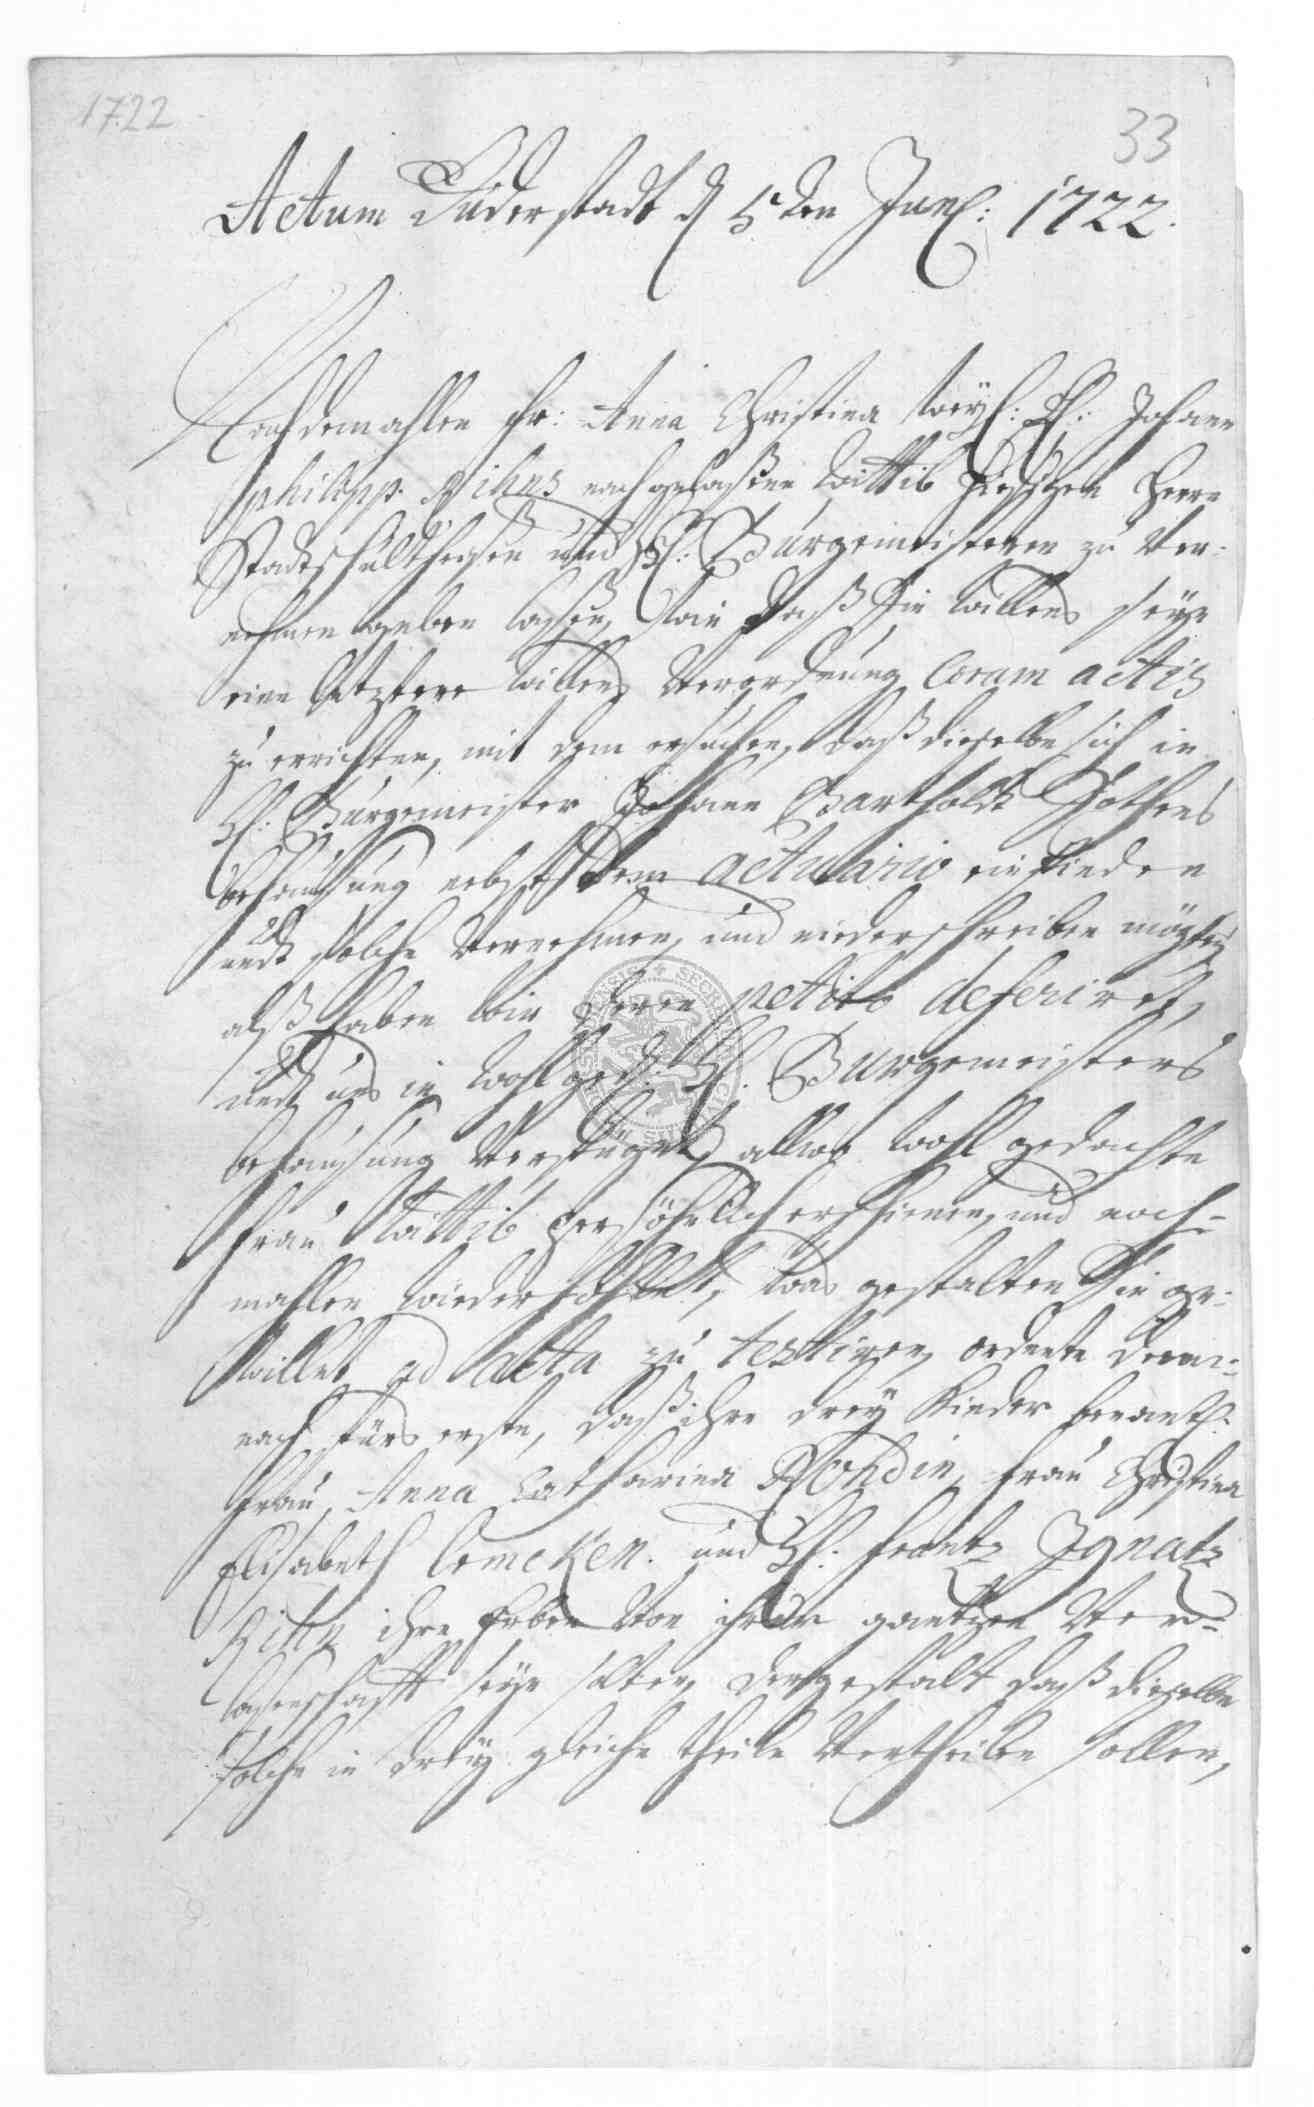 1722
33
Actum Duderstadt d 5ten Jun: 1722.
Nachdemahlen fr: Anna Christina weyl: H: Johann
philipp nachgelaßene wittib hiesigen Herrn
Stadtschultheißen und HH: Bürgemeisteren zu ver-
nehmen geben laßen, wie daß Sie willens seye
eine letztere willens verordnung Coram actis
zu errichten, mit dem ersuchen, daß dieselbe sich in
H: Bürgemeister Johann Barthold
behaußung nebst dem actuario einfinden
undt solche vernehmen, und niederschreiben mögten,
alß haben wir deren petito deferiret,
undt uns in wohlged: H. Burgemeisters
behaußung verfüget, allwo wohl gedachte
frau wittib persöhnlich erschienen, und noch-
mahlen wiederhohlet, was gestalten Sie ge-
willet ad acta zu testiren, ordnete dem-
nach fürs erste, daß ihre drey Kinder benantl.
frau Anna Catharina frau Christina
Elisabeth und H: frantz Ignatz
ihre Erben von ihrer gantzen Ver-
laßenschafft seyn solten, dergestalt daß dieselbe
solche in drey gleiche theile vertheilen sollen,